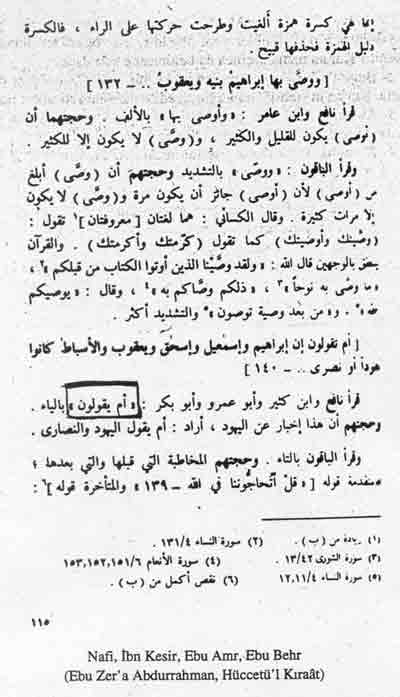 إنما هي كسرة همزة ألغيت وطرحت حركتها على الراء ، فالكسرة
دليل الهمزة فحذفها قبيح .
[ ووصَّى بها إبراهيمُ بنيه ويعقوبُ .. ــ ١٣٢ ]
قرأ نافع وابن عامر : « وأوصى بها » بالألف . وحجتهما أن
( أوصى ) يكون للقليل والكثير ، و( وصَّى ) لا يكون إلا للكثير .
وقرأ الباقون : « ووصَّى » بالتشديد وحجتهم أن ( وصَّى ) أبلغ
من ( أوصى ) لأن ( أوصى ) جائز أن يكون مرة و( وصَّى ) لا يكون
إلا مرات كثيرة . وقال الكسائي : هما لغتان [ معروفتان ]١ تقول :
( وصَّيتك وأوصيتك ) كما تقول ( كرّمتك وأكرمتك ) . والقرآن
ينطق بالوجهين قال الله : « ولقد وصَّيْنا الذين أوتوا الكتاب من قبلكم »٢ ،
« ما وصَّى به نوحاً »٣ ، « ذلكم وصَّاكم به »٤ ، وقال : « يوصيكم
الله »٥ . و« من بعد وصية توصون » والتشديد أكثر .
[ أم تقولون إن إبراهيم وإسمعيل وإسحٰق ويعقوب والأسباط كانوا
هوداً أو نصرى .. ــ ١٤٠ ]
قرأ نافع وابن كثير وأبو عمرو وأبو بكر : « أم يقولون » بالياء .
وحجتهم أن هذا إخبار عن اليهود ، أراد : أم يقول اليهود والنصارى .
وقرأ الباقون بالتاء . وحجتهم المخاطبة التي قبلها والتي بعدها ؛
فالمتقدمة قوله [ « قلْ أتُحاجُّوننا في الله ــ ١٣٩ » والمتأخرة قوله ]٦ :
(١) زيادة من ( ب ) . (٢) سورة النساء ١٣١/٤ .
(٣) سورة الشورى ١٣/٤٢ . (٤) سورة الأنعام ١٥٣,١٥٢,١٥١/٦
(٥) سورة النساء ١٢,١١/٤ (٦) نقص أكمل من ( ب ) .
١١٥
Nafi, İbn Kesir, Ebu Amr, Ebu Behr
(Ebu Zer'a Abdurrahman, Hüccetü'l Kıraât)